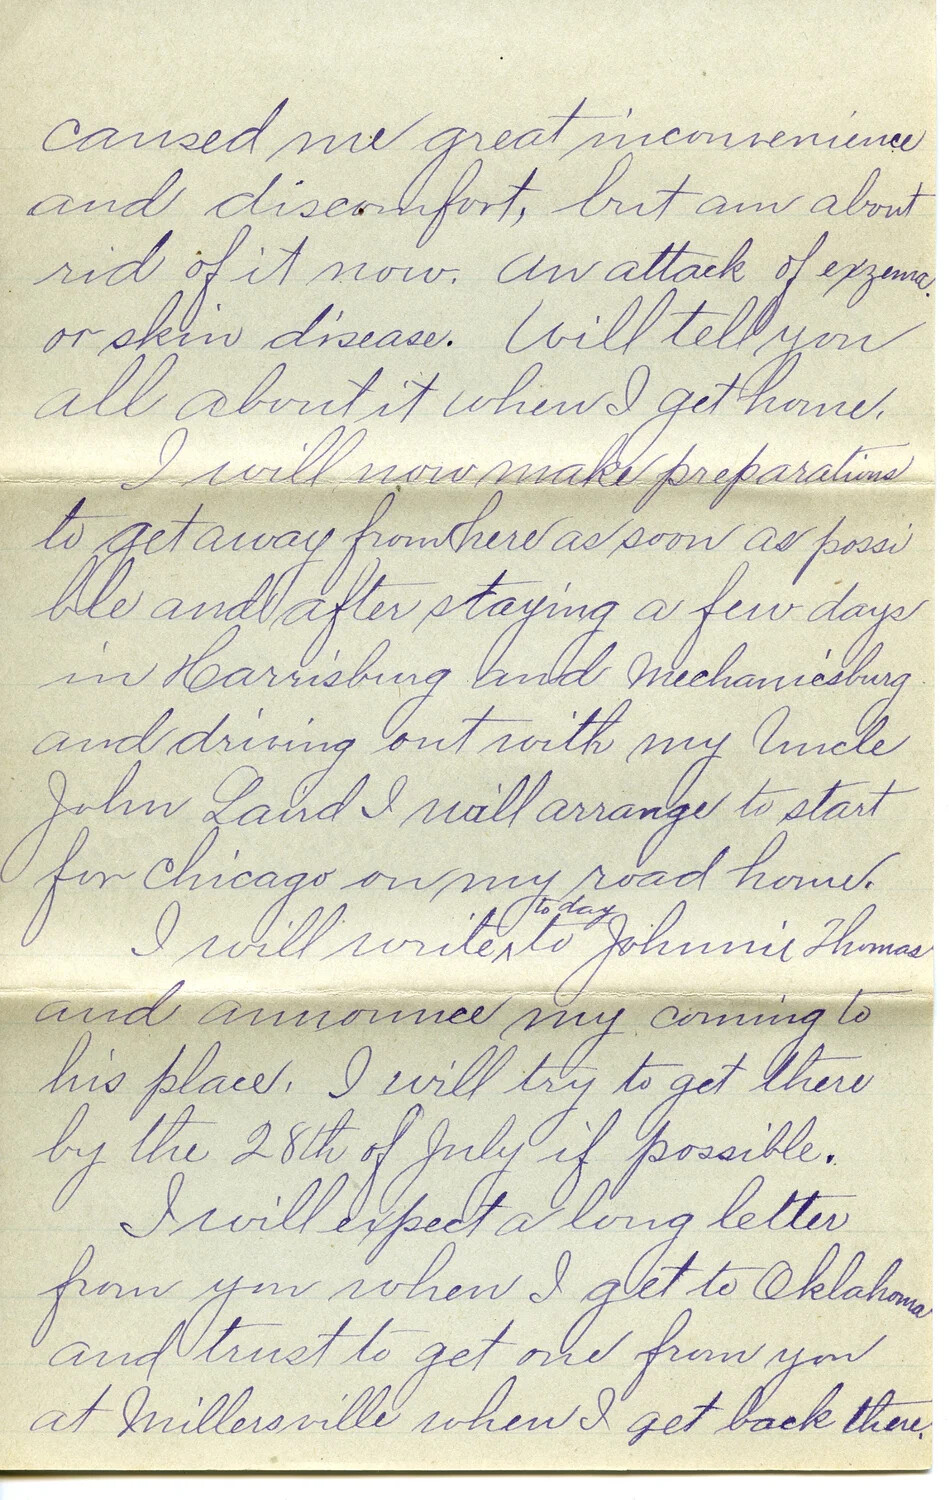 caused me great inconvenience
and discomfort, but am about
rid of it now. An attack of exzema
or skin disease. Will tell you
all about it when I get home.
I will now make preparations
to get away from here as soon as possi
ble and after staying a few days
in Harrisburg and Mechanicsburg
and driving out with my Uncle
John Laird I will arrange to start
for Chicago on my road home.
today
I will write to Johnnie Thomas
and announce my coming to
his place. I will try to get there
by the 28th of July if possible.
I will expect a long letter
from you when I get to Oklahoma
and trust to get one from you
at Millersville when I get back there.